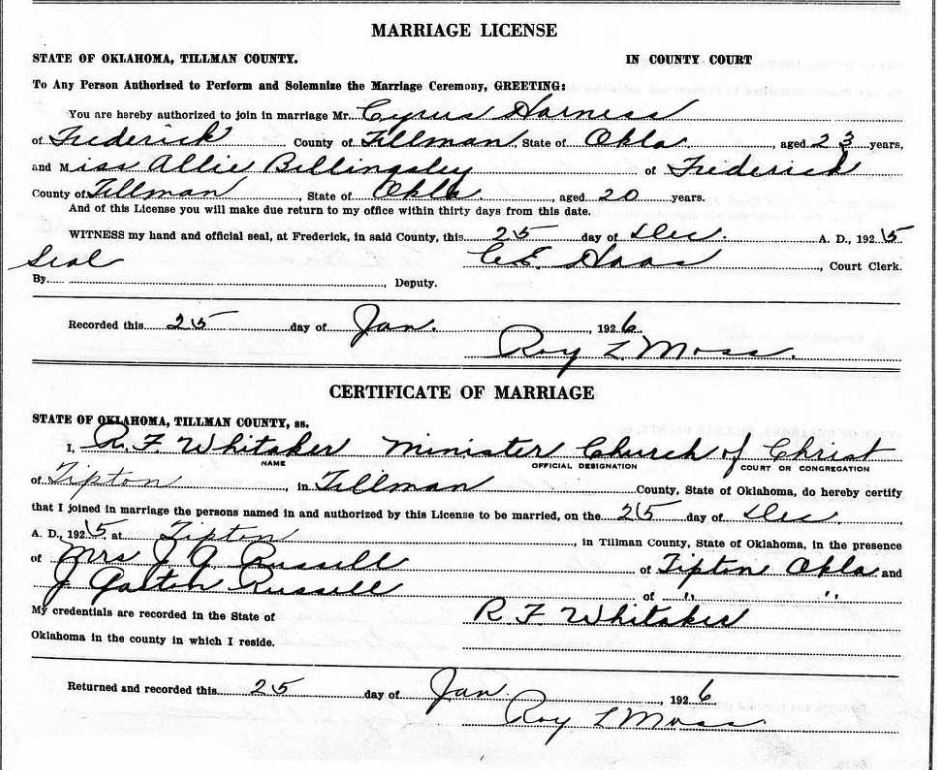 MARRIAGE LICENSE
STATE OF OKLAHOMA, TILLMAN COUNTY. IN COUNTY COURT
To Any Person Authorized to Perform and Solemnize the Marriage Ceremony, GREETING:
You are hereby authorized to join in marriage Mr. Cyrus Harness
of Frederick County of Tillman State of Okla. aged 23 years,
and Miss Allie Billingsley of Frederick
County of Tillman, State of Okla. aged 20 years.
And of this License you will make due return to my office within thirty days from this date.
WITNESS my hand and official seal, at Frederick, in said County, this 25 day of Dec. A. D., 1925
Seal C.E. Haas, Court Clerk.
By, Deputy.
Recorded this 25 day of Jan., 1926.
Roy L. Moss.
CERTIFICATE OF MARRIAGE
STATE OF OKLAHOMA, TILLMAN COUNTY, ss.
I, R. F. Whitaker Minister Church of Christ
NAME OFFICIAL DESIGNATION COURT OR CONGREGATION
of Tipton, in Tillman County, State of Oklahoma, do hereby certify
that I joined in marriage the persons named in and authorized by this License to be married, on the 25 day of Dec.
A. D., 1925 at Tipton, in Tillman County, State of Oklahoma, in the presence
of Mrs J. G. Russell of Tipton Okla and
J Gaston Russell of " "
My credentials are recorded in the State of R F Whitaker
Oklahoma in the county in which I reside.
Returned and recorded this 25 day of Jan., 1926
Roy L Moss